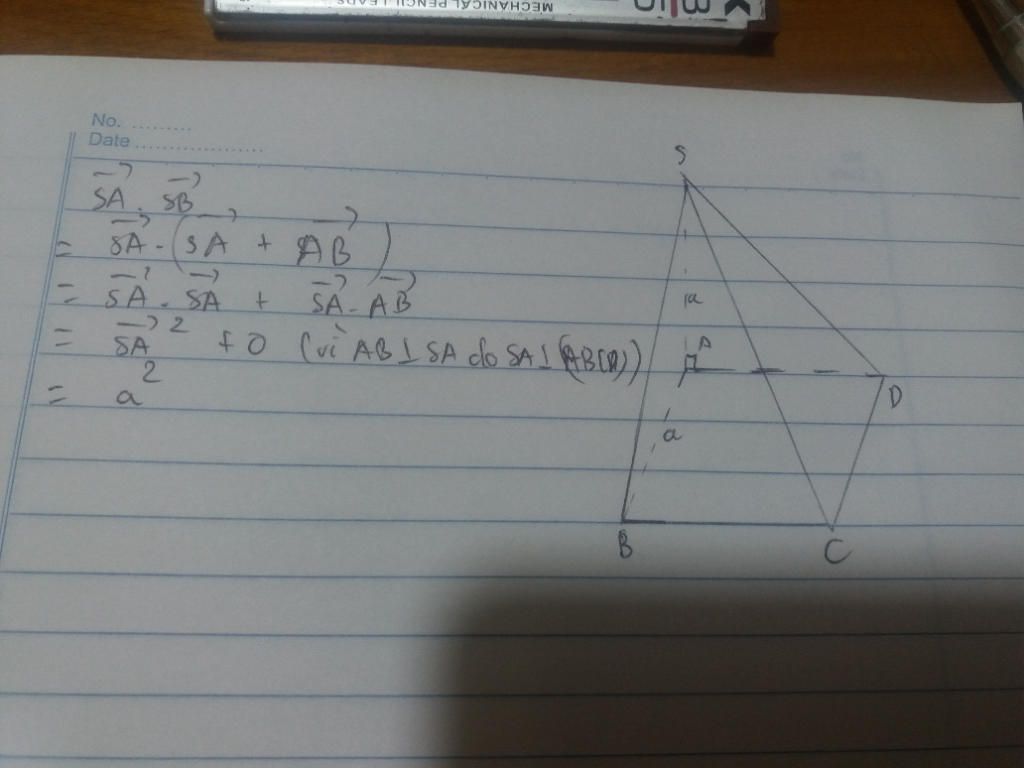 MECHANICAL PENCIL LEADS
No. .........
Date ...................
SA→ . SB→
= SA→ . (SA→ + AB→)
= SA→ . SA→ + SA→ . AB→
= SA→² + 0 (vì AB ⊥ SA do SA ⊥ (ABCD))
= a²
S
a
A
D
a
B
C